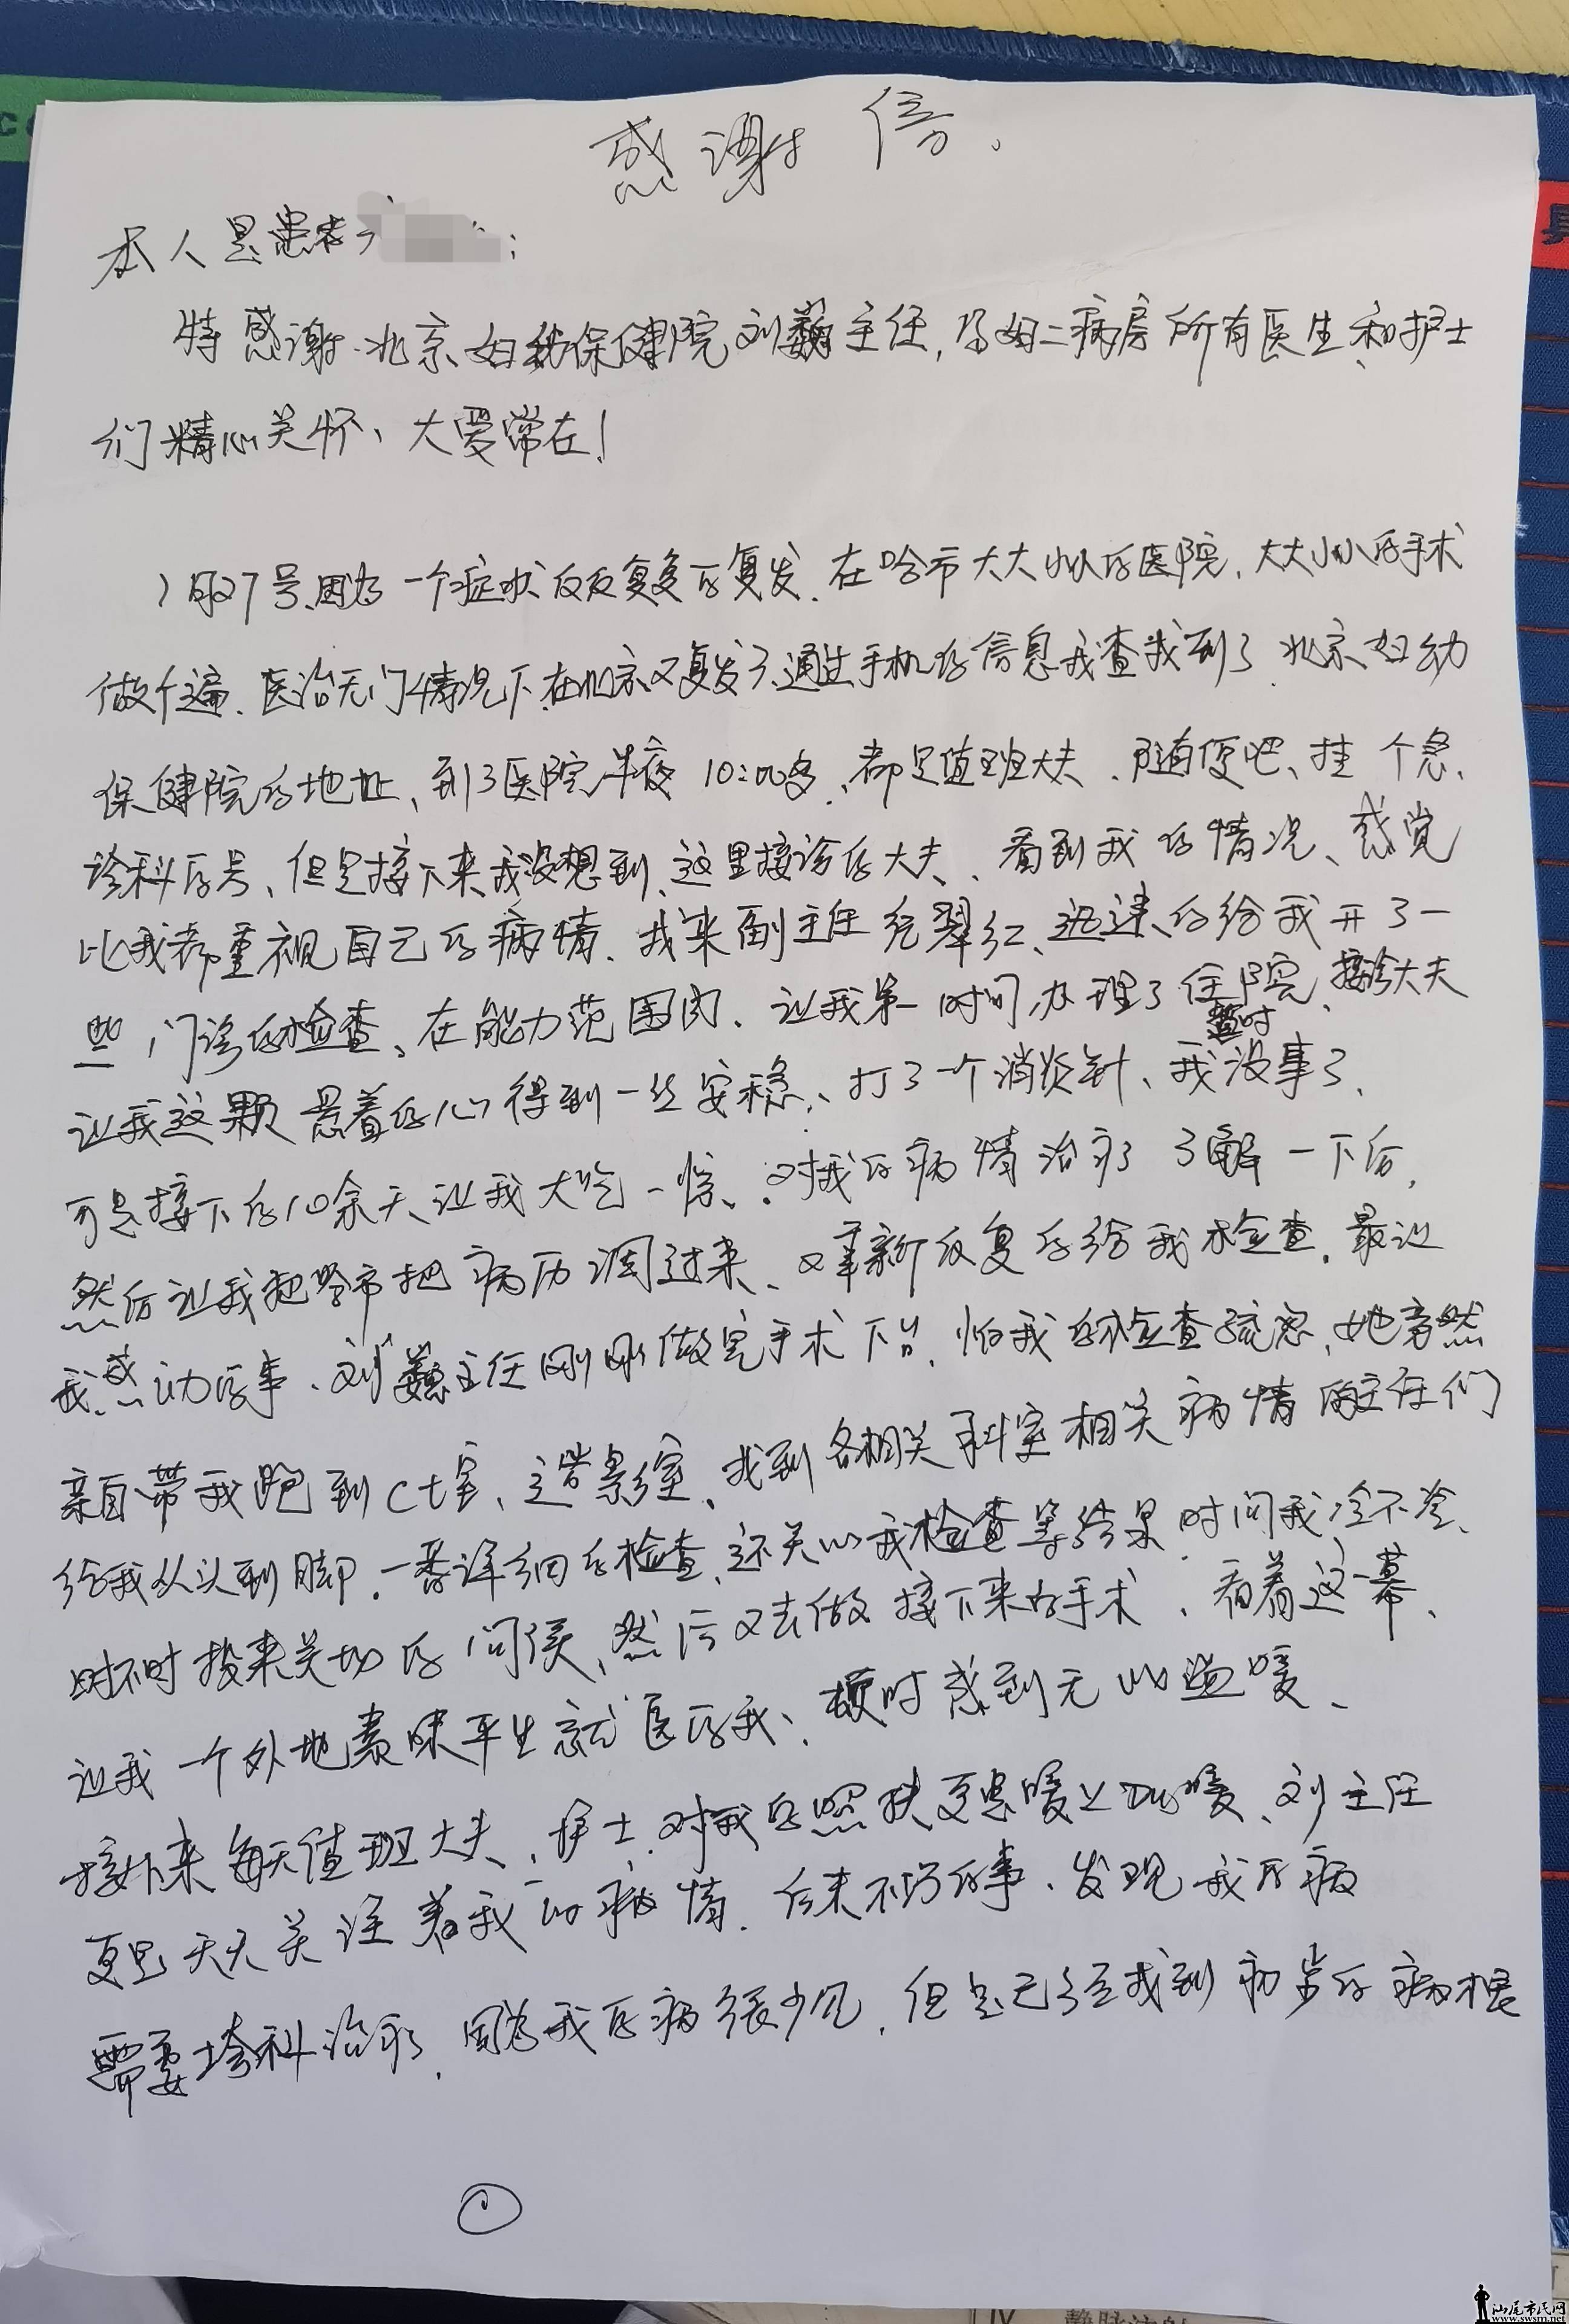 感谢信.
本人是患者
特感谢.北京妇幼保健院刘巍主任,乌姆二病房所有医生和护士
们精心关怀、大爱常在!
1月27号、因为一个症状反反复复的复发.在哈市大大小小的医院.大大小小的手术
做个遍.医治无门情况下.在北京又复发了、通过手机的信息我查找到了北京妇幼
保健院的地址、到了医院半夜10:00多,都是值班大夫.随便吧、挂个急.
诊科的号、但是接下来我没想到、这里接诊的大夫、看到我的情况、感觉
比我都重视自己的病情.找来副主任 翠红、迅速的给我开了一
些门诊的检查、在能力范围内.让我第一时间办理了住院、接诊大夫
让我这颗悬着的心得到一丝安稳、打了一个消炎针、我暂时没事了.
可是接下的10余天让我大吃一惊、.对我的病情治疗了解一下后,
然后让我把哈市把病历调过来、又重新反复的给我检查.最让
我感动的事、刘巍主任刚刚做完手术下台.怕我的检查疏忽,她竟然
亲自带我跑到ct室、造影室、找到各相关科室相关病情的主任们
给我从头到脚.一番详细的检查、还关心我检查等结果时问我冷不冷、
时不时投来关切的问侯、然后又去做接下来的手术.看着这一幕、
让我一个外地素昧平生就医的我、顿时感到无比温暖、
接下来每天值班大夫、护士.对我的照扶更是暖上加暖、刘主任
更是天天关注着我的病情.后来不巧的事、发现我的病
需要垮科治疗.因为我的病很少见,但是已经至找到初步的病根
①
静脉注射
汕尾市民网
www.swsm.net